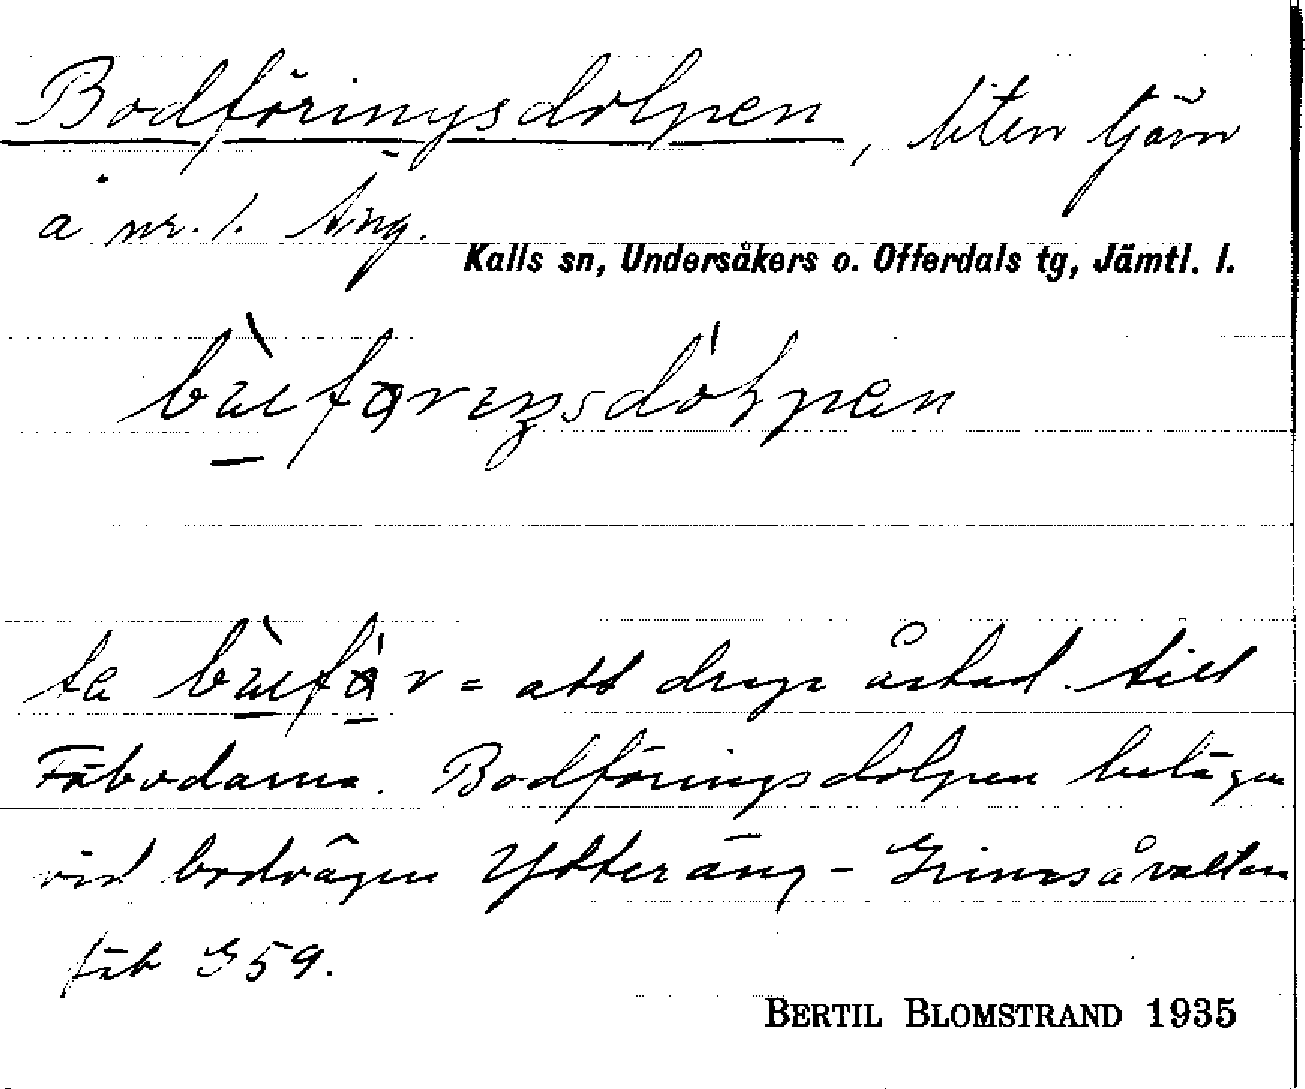 Bodföringsdolpen, liten tjärn
å nr. 1. Äng.
Kalls sn, Undersåkers o. Offerdals tg, Jämtl. l.
ta = att draga åstad till
Fäbodarna. Bodföringsdolpen belägen
vid bodvägen Ytteräng - Grinnsåvallen
fäb G59.
BERTIL BLOMSTRAND 1935